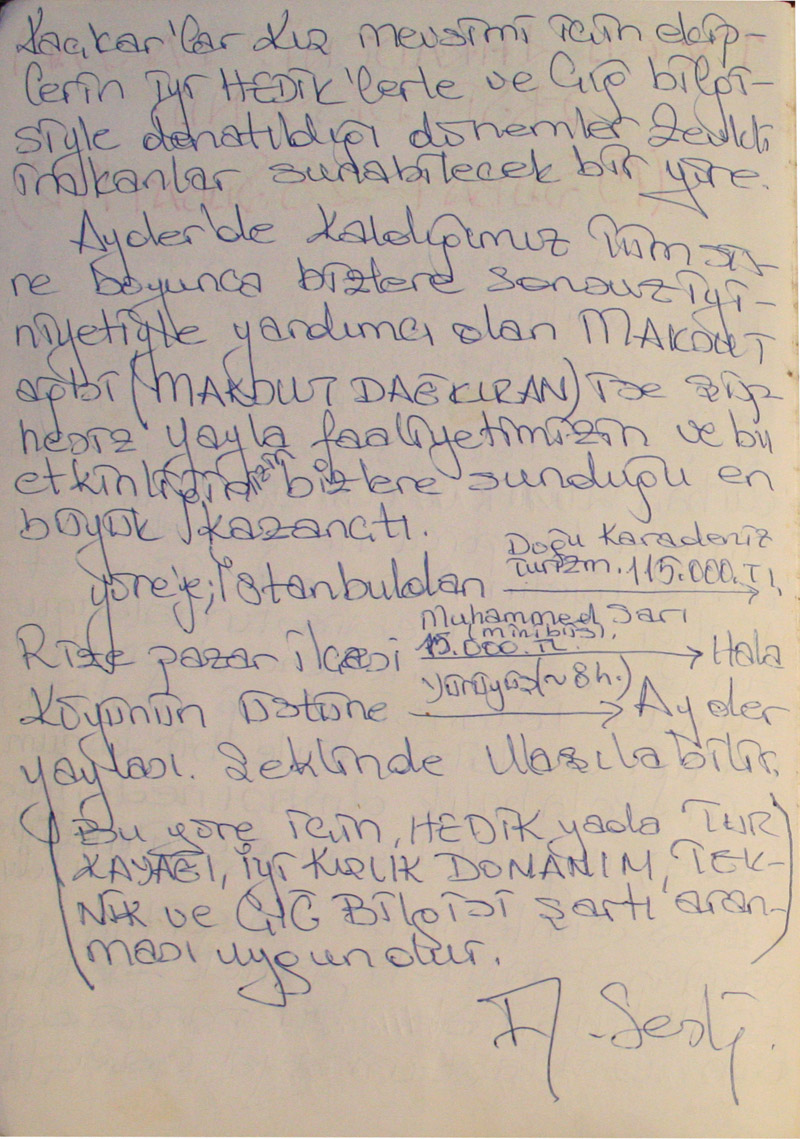 Kaçkar'lar Kış mevsimi için ekip-
lerin iyi HEDİK'lerle ve Çığ bilgi-
siyle donatıldığı dönemler Zevkli
imkanlar sunabilecek bir yöre.
Ayder'de Kaldığımız tüm sü-
re boyunca bizlere sonsuz iyi-
niyetiyle yardımcı olan MAKSUT
ağbi (MAKSUT DAĞKIRAN) ise şüp-
hesiz yayla faaliyetimizin ve bu
bizlere sunduğu en
büyük kazançtı.
Doğu Karadeniz
Turizm. 115.000.TL
Yöre'ye; İstanbuldan
Muhammed Sarı
(minibüs),
15.000.TL.
Rize pazar ilçesi → Hala
Yürüyüş (~8h.)
Köyünün Üstüne → Ayder
yaylası. Şeklinde Ulaşılabilir.
(Bu yöre için, HEDİK yada TUR
KAYAĞI, İyi KIŞLIK DONANIM, TEK-
NİK ve ÇIĞ Bilgisi şartı aran-
ması uygun olur.)